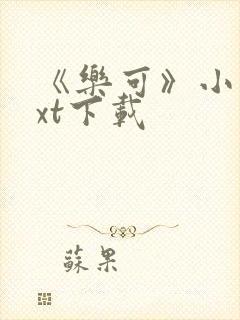 《樂可》小
xt下載
蘇果